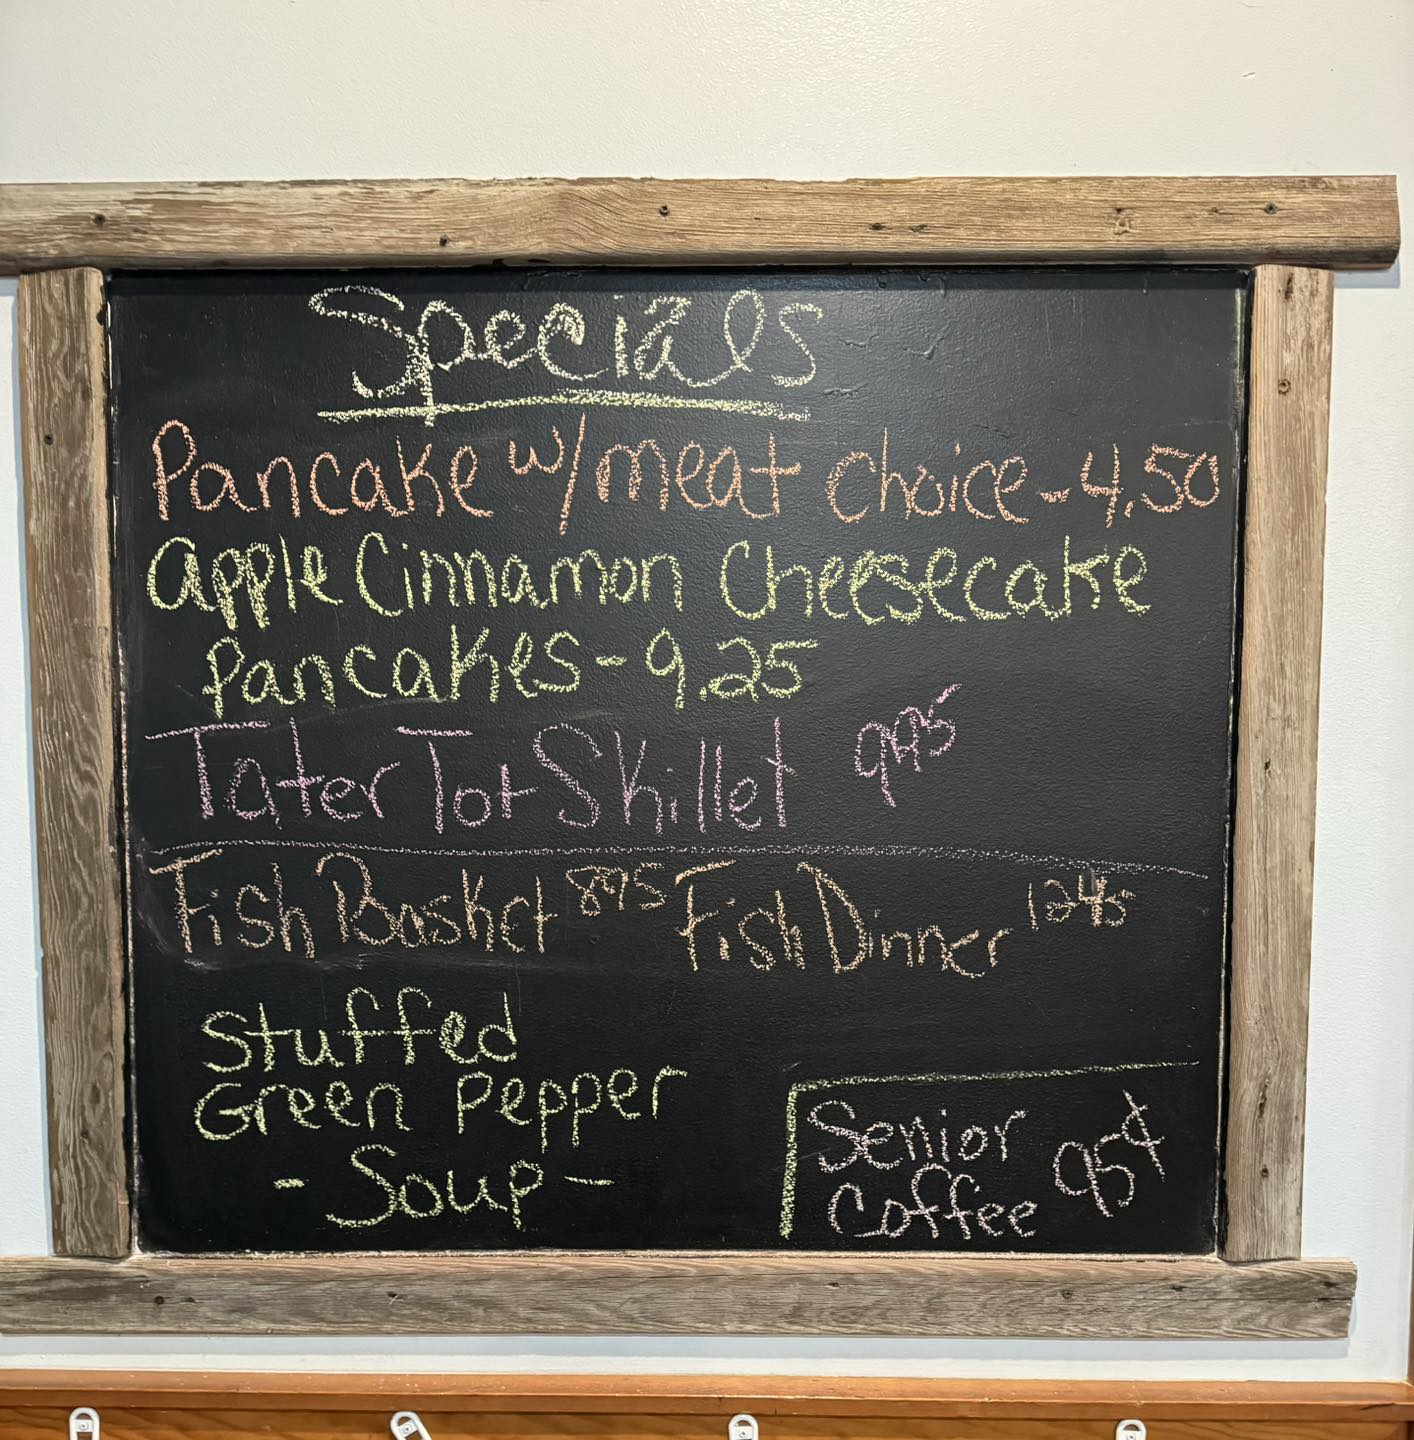 Specials
Pancake w/ meat choice - 4.50
Apple Cinnamon Cheesecake
Pancakes - 9.25
Tater Tot Skillet 9.95
Fish Basket 8.95 Fish Dinner 12.45
Stuffed
Green Pepper
- Soup -
Senior
Coffee 95¢